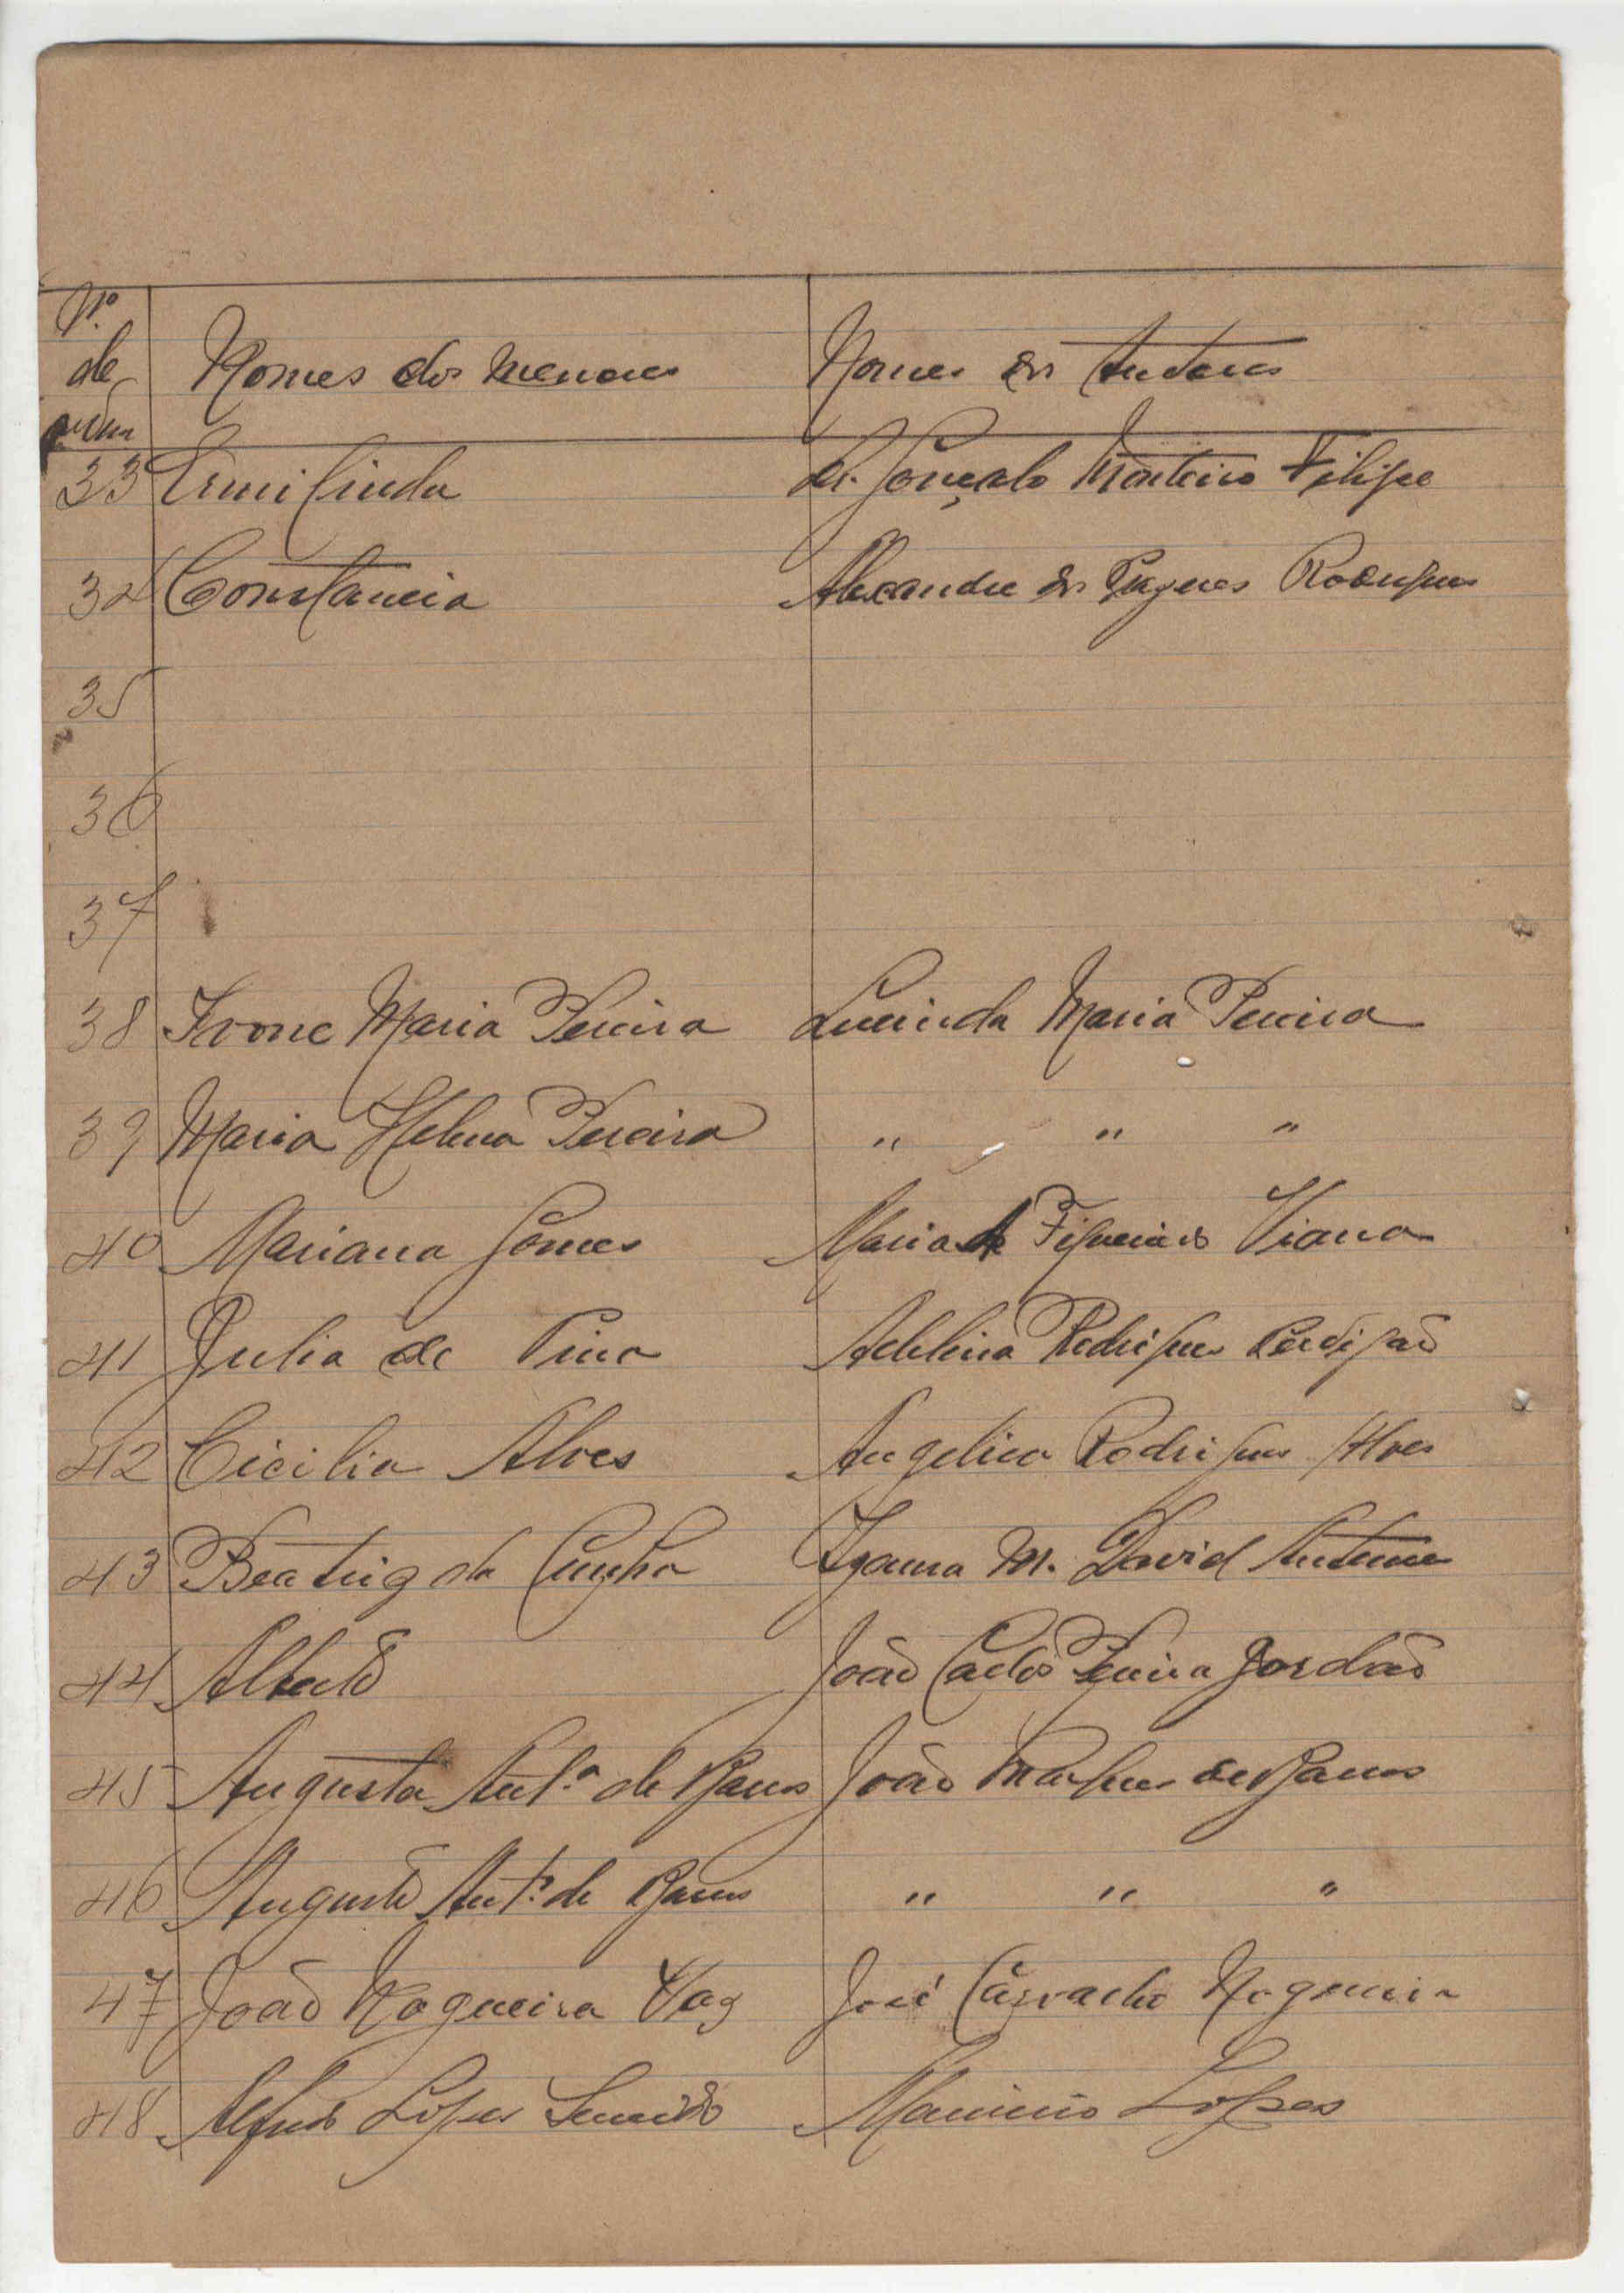 Nº
de
ordem
Nomes dos menores Nomes dos tutores
33 Ermilinda Dr. Gonçalo Monteiro Filipe
34 Constancia Alexandre dos Rodrigues
35
36
37
38 Ivone Maria Pereira Lucinda Maria Pereira
39 Maria Helena Pereira " " "
40 Mariana Gomes Maria de Figueiredo Viana
41 Julia de Pina Adelina Rodrigues Perdigão
42 Cicilia Alves Angelica Rodrigues Alves
43 Beatriz da Cunha Izaura M. David Antunes
44 Alberto João Carlos Pereira Jordão
45 Augusta Antª de Barros João Marques de Barros
46 Augusto Antº de Barros " " "
47 João Nogueira Vaz José Carvalho Nogueira
48 Alfredo Lopes Mauricio Lopes